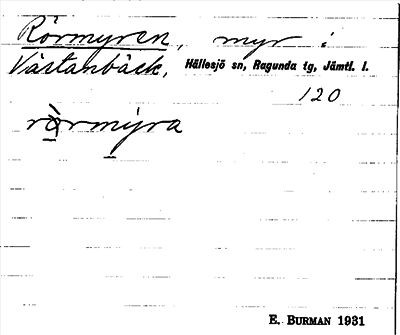 Rörmyren, myr i
Västanbäck, Hällesjö sn, Ragunda tg, Jämtl. l.
120
rò̱rmy̱ra
E. BURMAN 1931